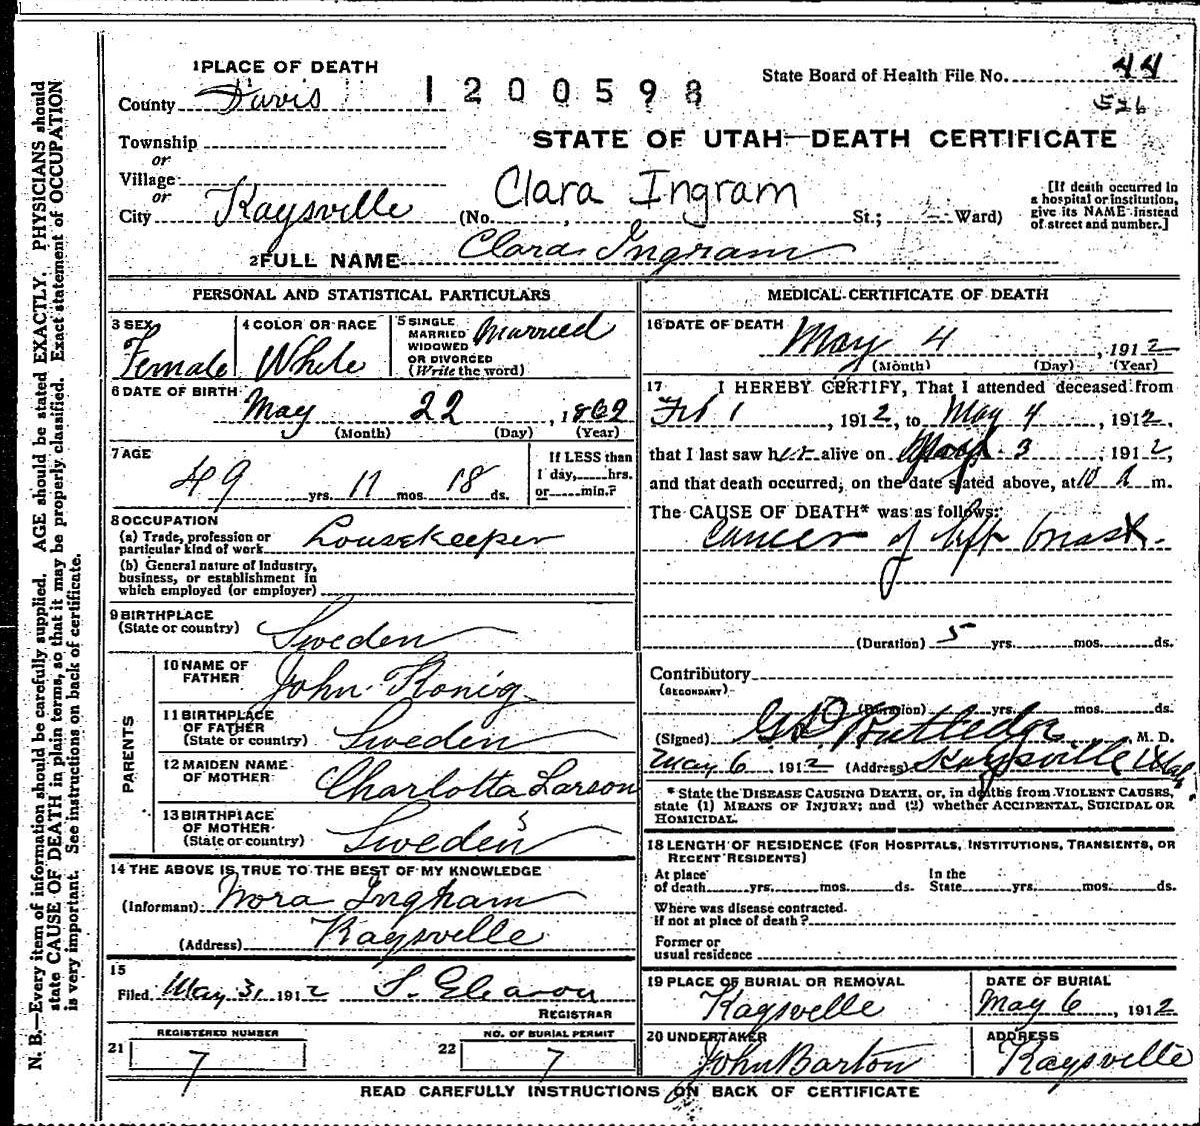 1 PLACE OF DEATH
County Davis
1200598
State Board of Health File No. 44
526
STATE OF UTAH—DEATH CERTIFICATE
Township
or
Village
or
City Kaysville (No. , St.; Ward)
Clara Ingram
[If death occurred in
a hospital or institution,
give its NAME instead
of street and number.]
2 FULL NAME Clara Ingram
PERSONAL AND STATISTICAL PARTICULARS
3 SEX
Female
4 COLOR OR RACE
White
5 SINGLE
MARRIED
WIDOWED
OR DIVORCED
(Write the word)
Married
6 DATE OF BIRTH
May 22, 1862
(Month) (Day) (Year)
7 AGE
49 yrs. 11 mos. 18 ds.
If LESS than
1 day, hrs.
or min.?
8 OCCUPATION
(a) Trade, profession or
particular kind of work Housekeeper
(b) General nature of Industry,
business, or establishment in
which employed (or employer)
9 BIRTHPLACE
(State or country) Sweden
PARENTS
10 NAME OF
FATHER John Konig
11 BIRTHPLACE
OF FATHER
(State or country) Sweden
12 MAIDEN NAME
OF MOTHER Charlotta Larson
13 BIRTHPLACE
OF MOTHER
(State or country) Sweden
14 THE ABOVE IS TRUE TO THE BEST OF MY KNOWLEDGE
(Informant) Nora Ingham
(Address) Kaysville
15
Filed May 31, 1912
REGISTRAR
REGISTERED NUMBER
21 7
NO. OF BURIAL PERMIT
22 7
MEDICAL CERTIFICATE OF DEATH
16 DATE OF DEATH
May 4, 1912
(Month) (Day) (Year)
17 I HEREBY CERTIFY, That I attended deceased from
Feb 1 1912, to May 4, 1912,
that I last saw her alive on 3, 1912,
and that death occurred, on the date stated above, at 10 a m.
The CAUSE OF DEATH* was as follows:
Cancer of left breast.
(Duration) 5 yrs. mos. ds.
Contributory
(SECONDARY)
(Duration) yrs. mos. ds.
(Signed) Rutledge M. D.
May 6, 1912 (Address) Kaysville Utah
* State the DISEASE CAUSING DEATH, or, in deaths from VIOLENT CAUSES,
state (1) MEANS OF INJURY; and (2) whether ACCIDENTAL, SUICIDAL OR
HOMICIDAL.
18 LENGTH OF RESIDENCE (FOR HOSPITALS, INSTITUTIONS, TRANSIENTS, OR
RECENT RESIDENTS)
At place
of death yrs. mos. ds.
In the
State yrs. mos. ds.
Where was disease contracted.
If not at place of death?
Former or
usual residence
19 PLACE OF BURIAL OR REMOVAL
Kaysville
DATE OF BURIAL
May 6, 1912
20 UNDERTAKER
John Barton
ADDRESS
Kaysville
READ CAREFULLY INSTRUCTIONS ON BACK OF CERTIFICATE
N. B.—Every item of information should be carefully supplied. AGE should be stated EXACTLY. PHYSICIANS should
state CAUSE OF DEATH in plain terms, so that it may be properly classified. Exact statement of OCCUPATION
is very important. See instructions on back of certificate.